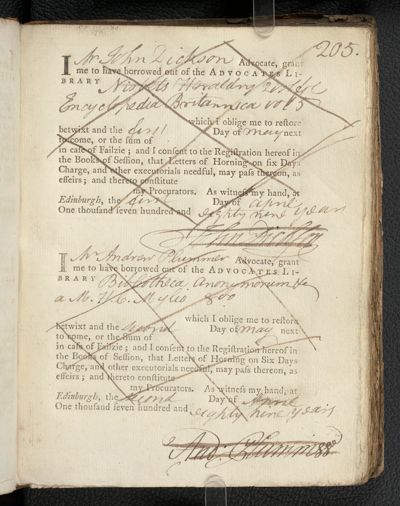 205.
I Mr John Dickson Advocate, grant
me to have borrowed out of the ADVOCATES LI-
BRARY Nisbets Heraldry
Encyclopedia Britannica vol 5
which I oblige me to restore
betwixt and the first Day of May next
to come, or the sum of
in case of Failzie; and I consent to the Registration hereof in
the Books of Session, that Letters of Horning on six Days
Charge, and other executorials needful, may pass thereon, as
effeirs; and thereto constitute
my Procurators. As witness my hand, at
Edinburgh, the first Day of April
One thousand seven hundred and eighty nine years
John Dickson
I Mr Andrew Plummer Advocate, grant
me to have borrowed out of the ADVOCATES LI-
BRARY Bibliotheca Anonymorum &c
a M. H. C. Mylio 8vo
which I oblige me to restore
betwixt and the second Day of May next
to come, or the Sum of
in case of Failzie; and I consent to the Registration hereof in
the Books of Session, that Letters of Horning on Six Days
Charge, and other executorials needful, may pass thereon, as
effeirs; and thereto constitute
my Procurators. As witness my hand, at
Edinburgh, the second Day of April
One thousand seven hundred and eighty nine years
And. Plummer